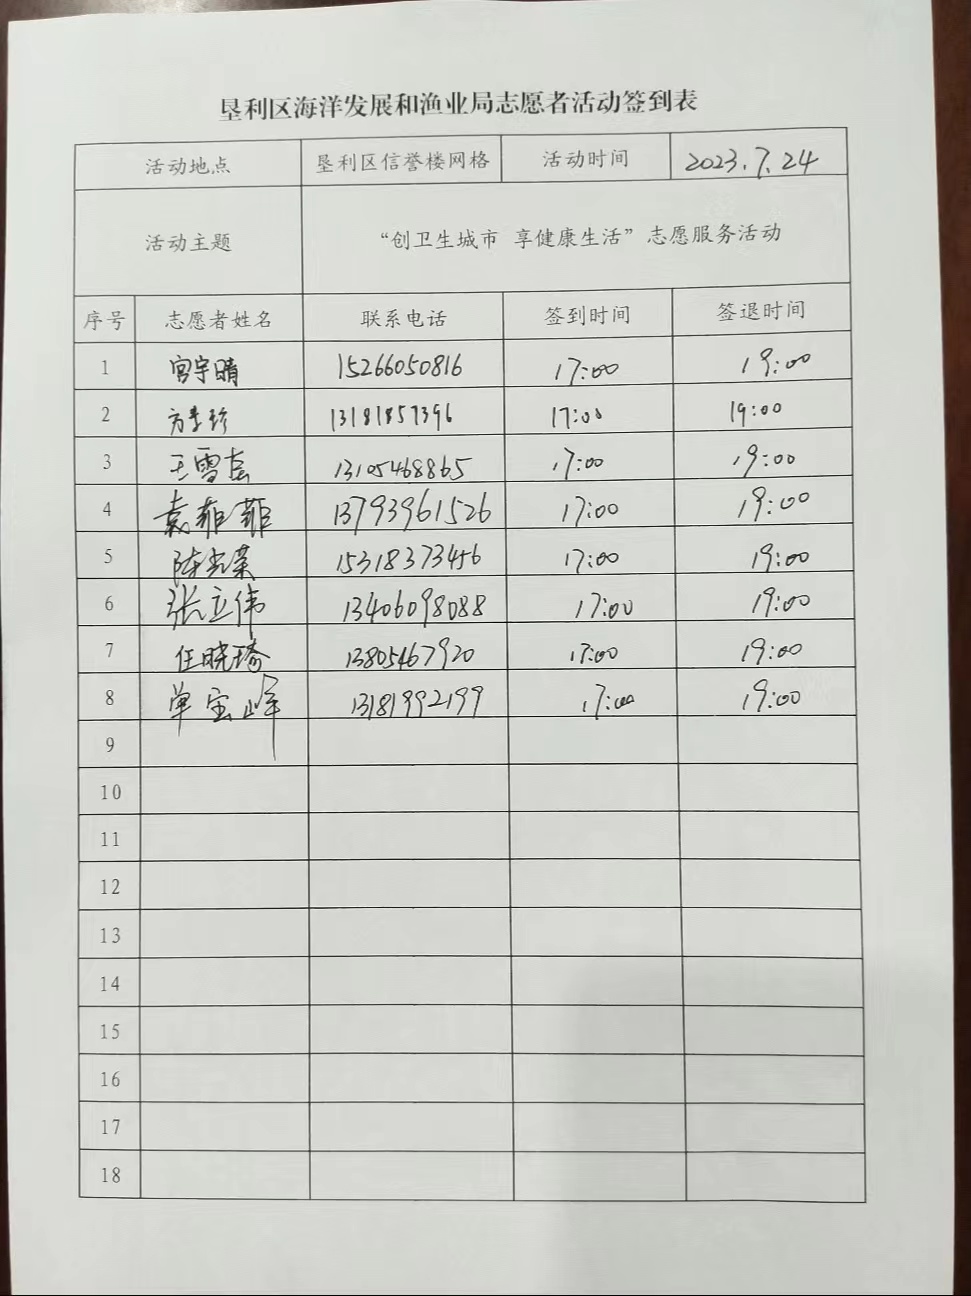 垦利区海洋发展和渔业局志愿者活动签到表
活动地点 垦利区信誉楼网格 活动时间 2023.7.24
活动主题 “创卫生城市 享健康生活”志愿服务活动
序号 志愿者姓名 联系电话 签到时间 签退时间
1 宫宇晴 15266050816 17:00 19:00
2 13181857396 17:00 19:00
3 王雪磊 13105468865 17:00 19:00
4 袁菲菲 13793961526 17:00 19:00
5 陈光荣 15318373456 17:00 19:00
6 张立伟 13406098088 17:00 19:00
7 任晓琦 13805467920 17:00 19:00
8 单宝峰 13181992199 17:00 19:00
9
10
11
12
13
14
15
16
17
18